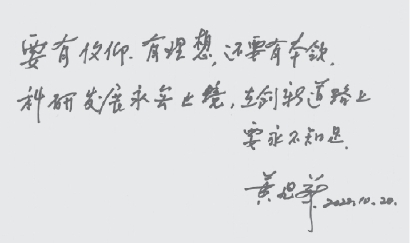 要有信仰.有理想,还要有本领.
科研发展永无止境,在创新道路上
要永不知足.
黄旭华 2020.10.20.